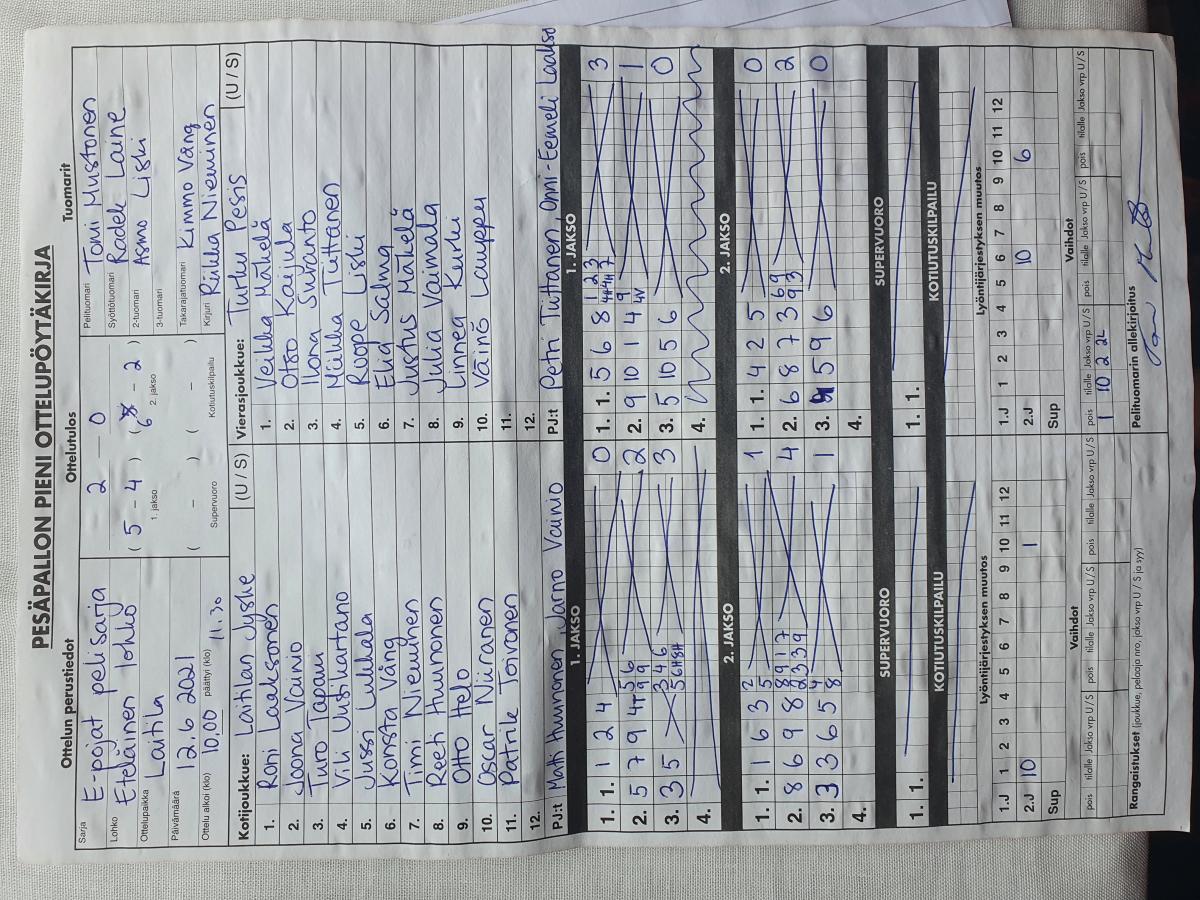 PESÄPALLON PIENI OTTELUPÖYTÄKIRJA
Ottelun perustiedot
Sarja E-pojat pelisarja
Lohko Eteläinen lohko
Ottelupaikka Laitila
Päivämäärä 12.6 2021
Ottelu alkoi (klo) 10.00 päättyi (klo) 11.30
Ottelutulos
2 — 0
( 5 - 4 ) ( 6 - 2 )
1. jakso 2. jakso
( - ) ( - )
Supervuoro Kotiutuskilpailu
Tuomarit
Pelituomari Tomi Mustonen
Syöttötuomari Radek Laine
2-tuomari Asmo Liski
3-tuomari
Takarajatuomari Kimmo Väng
Kirjuri Riikka Nieminen
Kotijoukkue: Laitilan Jyske (U / S)
1. Roni Laaksonen
2. Joona Vainio
3. Turo Tapani
4. Vili Uusikartano
5. Jussi Lululala
6. Konsta Väng
7. Timi Nieminen
8. Reeti Huunonen
9. Otto Helo
10. Oscar Niiranen
11. Patrik Toivonen
12.
PJ:t Matti Huunonen, Jarno Vainio
Vierasjoukkue: Turku Pesis (U / S)
1. Veikka Mäkelä
2. Otso Kaijula
3. Ilona Suranto
4. Miikka Tiittanen
5. Roope Liski
6. Elia Salma
7. Justus Mäkelä
8. Julia Vaimala
9. Linnea Keski
10. Väinö Lauppu
11.
12.
PJ:t Petri Tiittanen, Onni-Eemeli Laakso
1. JAKSO
1. 1. 1 2 4 0
2. 5 7 9 4T 5 6 2
9 9
3. 3 5 3 4 6 3
5 6H 8H
4.
1. JAKSO
1. 1. 5 6 8 1 2 3 3
4H 4H 7
2. 9 10 1 4 9 1
4V
3. 5 10 5 6 0
4.
2. JAKSO
1. 1. 1 6 3 2 1
5
2. 8 6 9 8 8 9 1 7 4
2 3 3 9
3. 3 3 6 5 4 1
8
4.
2. JAKSO
1. 1. 4 2 5 0
2. 6 8 7 3 6 9 2
9 3
3. 5 9 6 0
4.
SUPERVUORO
1. 1.
SUPERVUORO
1. 1.
KOTIUTUSKILPAILU
KOTIUTUSKILPAILU
Lyöntijärjestyksen muutos
1.J 1 2 3 4 5 6 7 8 9 10 11 12
2.J 10 1
Sup
Lyöntijärjestyksen muutos
1.J 1 2 3 4 5 6 7 8 9 10 11 12
2.J 10 6
Sup
Vaihdot
pois tilalle Jakso vrp U / S pois tilalle Jakso vrp U / S pois tilalle Jakso vrp U / S
Vaihdot
pois tilalle Jakso vrp U / S pois tilalle Jakso vrp U / S pois tilalle Jakso vrp U / S
1 10 2 2L
Rangaistukset (joukkue, pelaaja nro, jakso vrp U / S ja syy)
Pelituomarin allekirjoitus